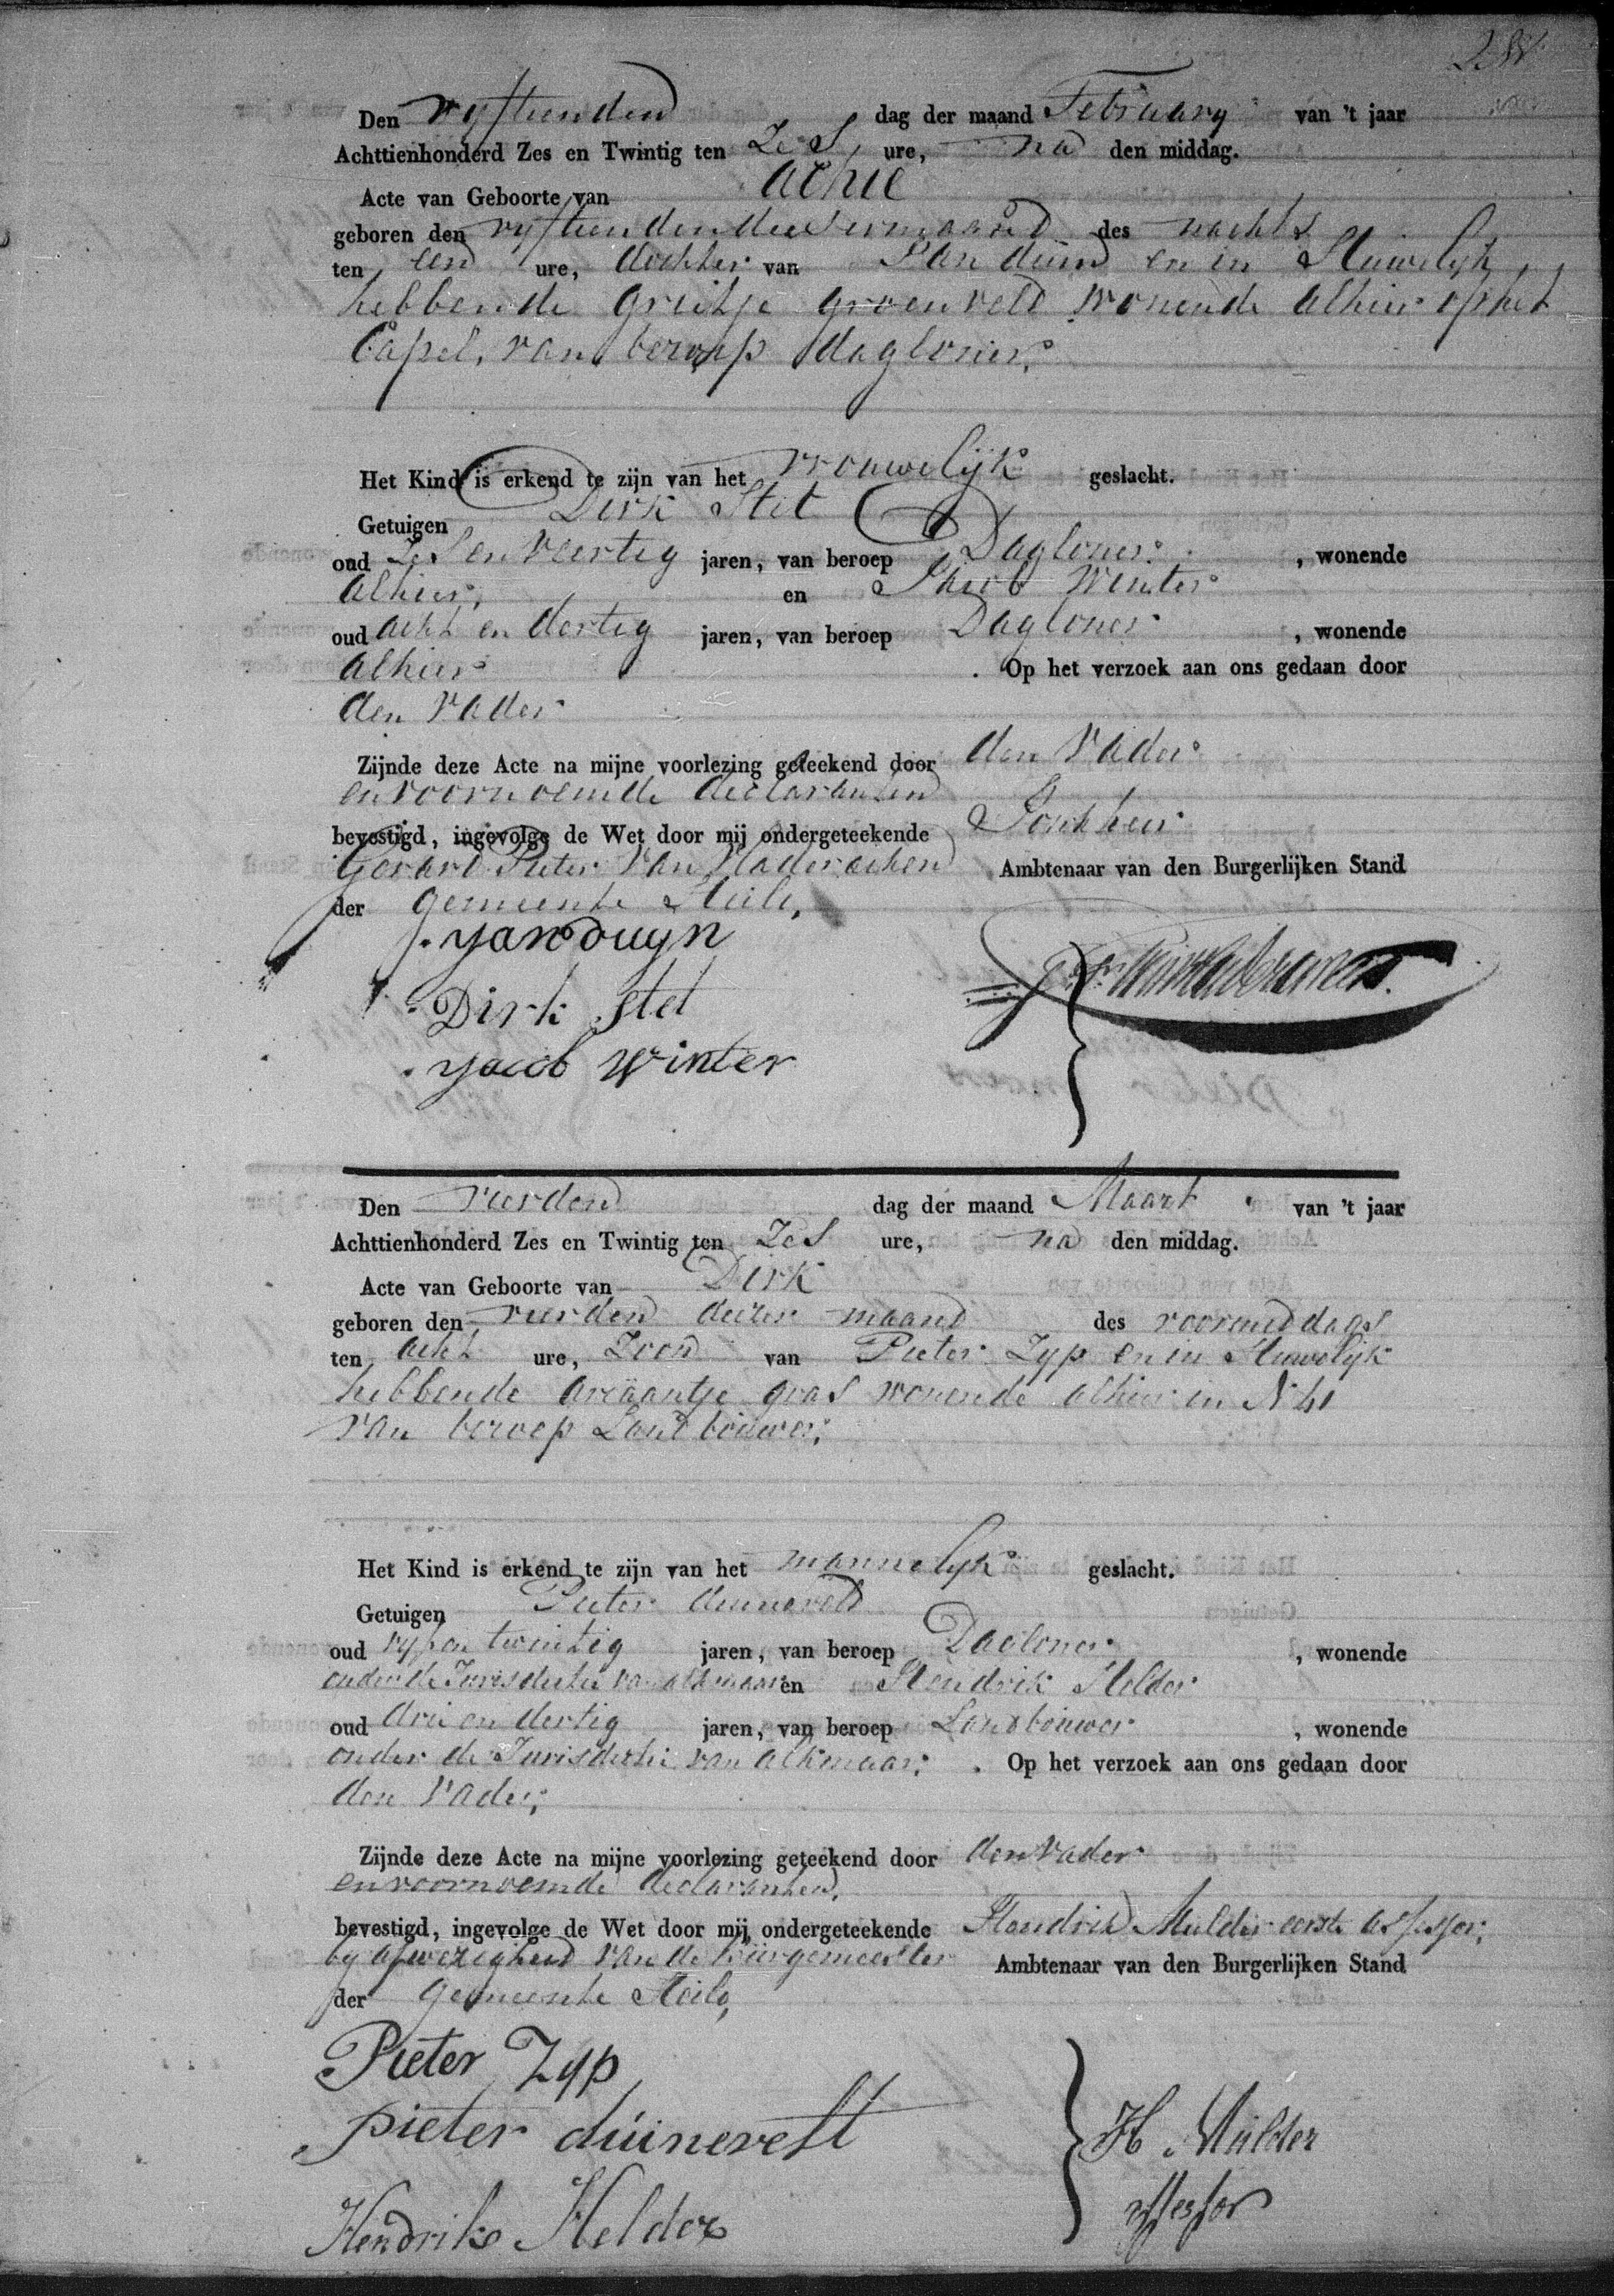 Den vyftienden dag der maand February van 't jaar
Achttienhonderd Zes en Twintig ten Zes ure, na den middag.
Acte van Geboorte van
geboren den vyftienden deeser maand des nachts
ten een ure, dochter van Jan duin en in Huwelyk
hebbende grietje groenveld wonende alhier op het
Capel, van beroep dagloner.
Het Kind is erkend te zijn van het vrouwelijk geslacht.
Getuigen Dirk Stet
oud Zes en veertig jaren, van beroep Dagloner , wonende
alhier, en Jacob Winter
oud acht en dertig jaren, van beroep Dagloner , wonende
alhier . Op het verzoek aan ons gedaan door
den Vader
Zijnde deze Acte na mijne voorlezing geteekend door den Vader
en voornoemde declaranten
bevestigd, ingevolge de Wet door mij ondergeteekende Jonkheer
Gerard Pieter van Ambtenaar van den Burgerlijken Stand
der gemeente Heilo,
J. van duyn
Dirk Stet
Jacob Winter
Den vierden dag der maand Maart van 't jaar
Achttienhonderd Zes en Twintig ten Zes ure, na den middag.
Acte van Geboorte van Dirk
geboren den vierden deezer maand des voormiddags
ten acht ure, Zoon van Pieter Zyp en in Huwelijk
hebbende ariaantje gras wonende alhier in N 41
van beroep Landbouwer,
Het Kind is erkend te zijn van het mannelyk geslacht.
Getuigen Pieter duineveld
oud vyf en twintig jaren, van beroep Dagloner , wonende
onder de Jurisdictie van alkmaar en Hendrik Helder
oud drie en dertig jaren, van beroep Landbouwer , wonende
onder de Jurisdictie van alkmaar, . Op het verzoek aan ons gedaan door
den Vader,
Zijnde deze Acte na mijne voorlezing geteekend door den Vader
en voornoemde declaranten,
bevestigd, ingevolge de Wet door mij ondergeteekende Hendrik Mulder eerste assessor,
by afwezigheid van de burgemeester Ambtenaar van den Burgerlijken Stand
der gemeente Heilo,
Pieter Zyp
pieter duinevelt
H Mulder
assessor
Hendrik Helder